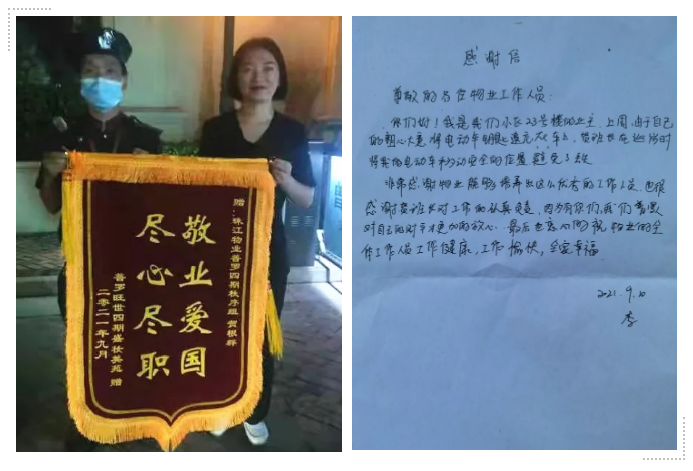 赠:珠江物业普罗四期秩序组 贺根群
敬业爱国
尽心尽职
普罗旺世四期盛妆英苑 赠
二零二一年九月
感谢信
尊敬的各位物业工作人员:
你们好!我是我们小区23号楼的业主,上周由于自己
的粗心大意,将电动车钥匙遗忘在车上,贺班长在巡岗时
将我的电动车移动安全的位置,避免了
非常感谢物业能够培养出这么优秀的工作人员,也很
感谢贺班长对工作的认真负责,因为有你们,我们
对自己的更加的放心。最后也衷心的祝物业的全
体工作人员工作健康,工作愉快,全家幸福。
2021.9.10
李